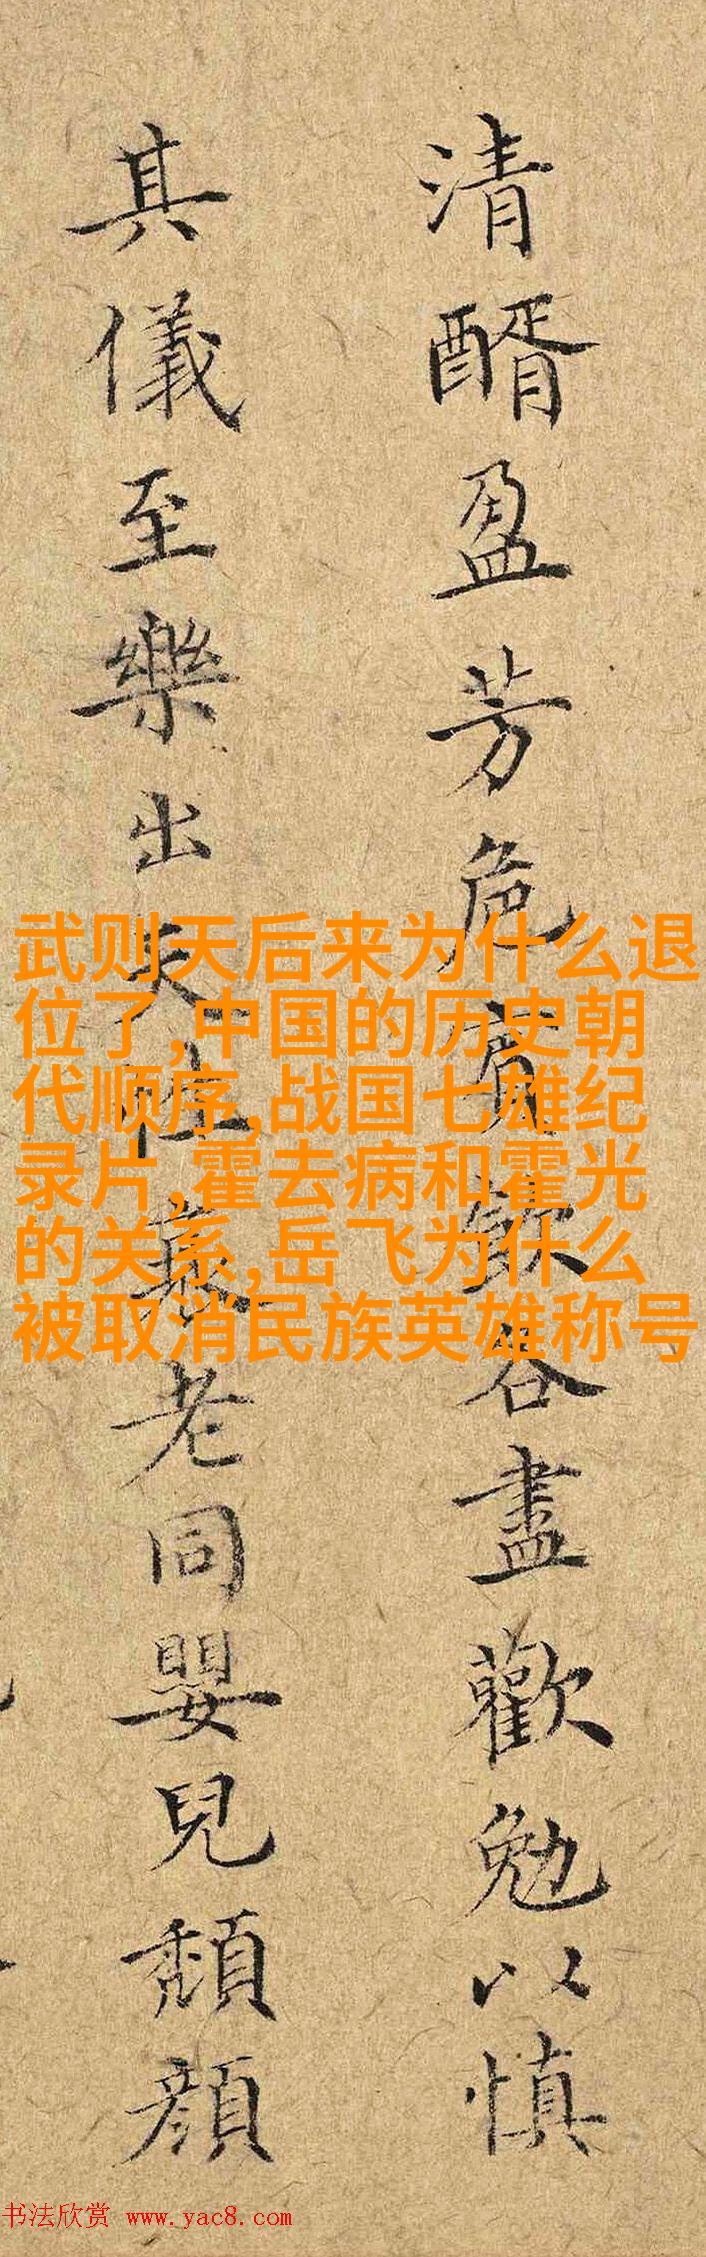 清醑盈芳卮賓飲各盡歡勉以慎
其儀至樂出天性耋老同嬰兒頹顏
武则天后来为什么退
位了,中国的历史朝
代顺序,战国七雄纪
录片,霍去病和霍光
的关系,岳飞为什么
被取消民族英雄称号
书法欣赏 www.yac8.com